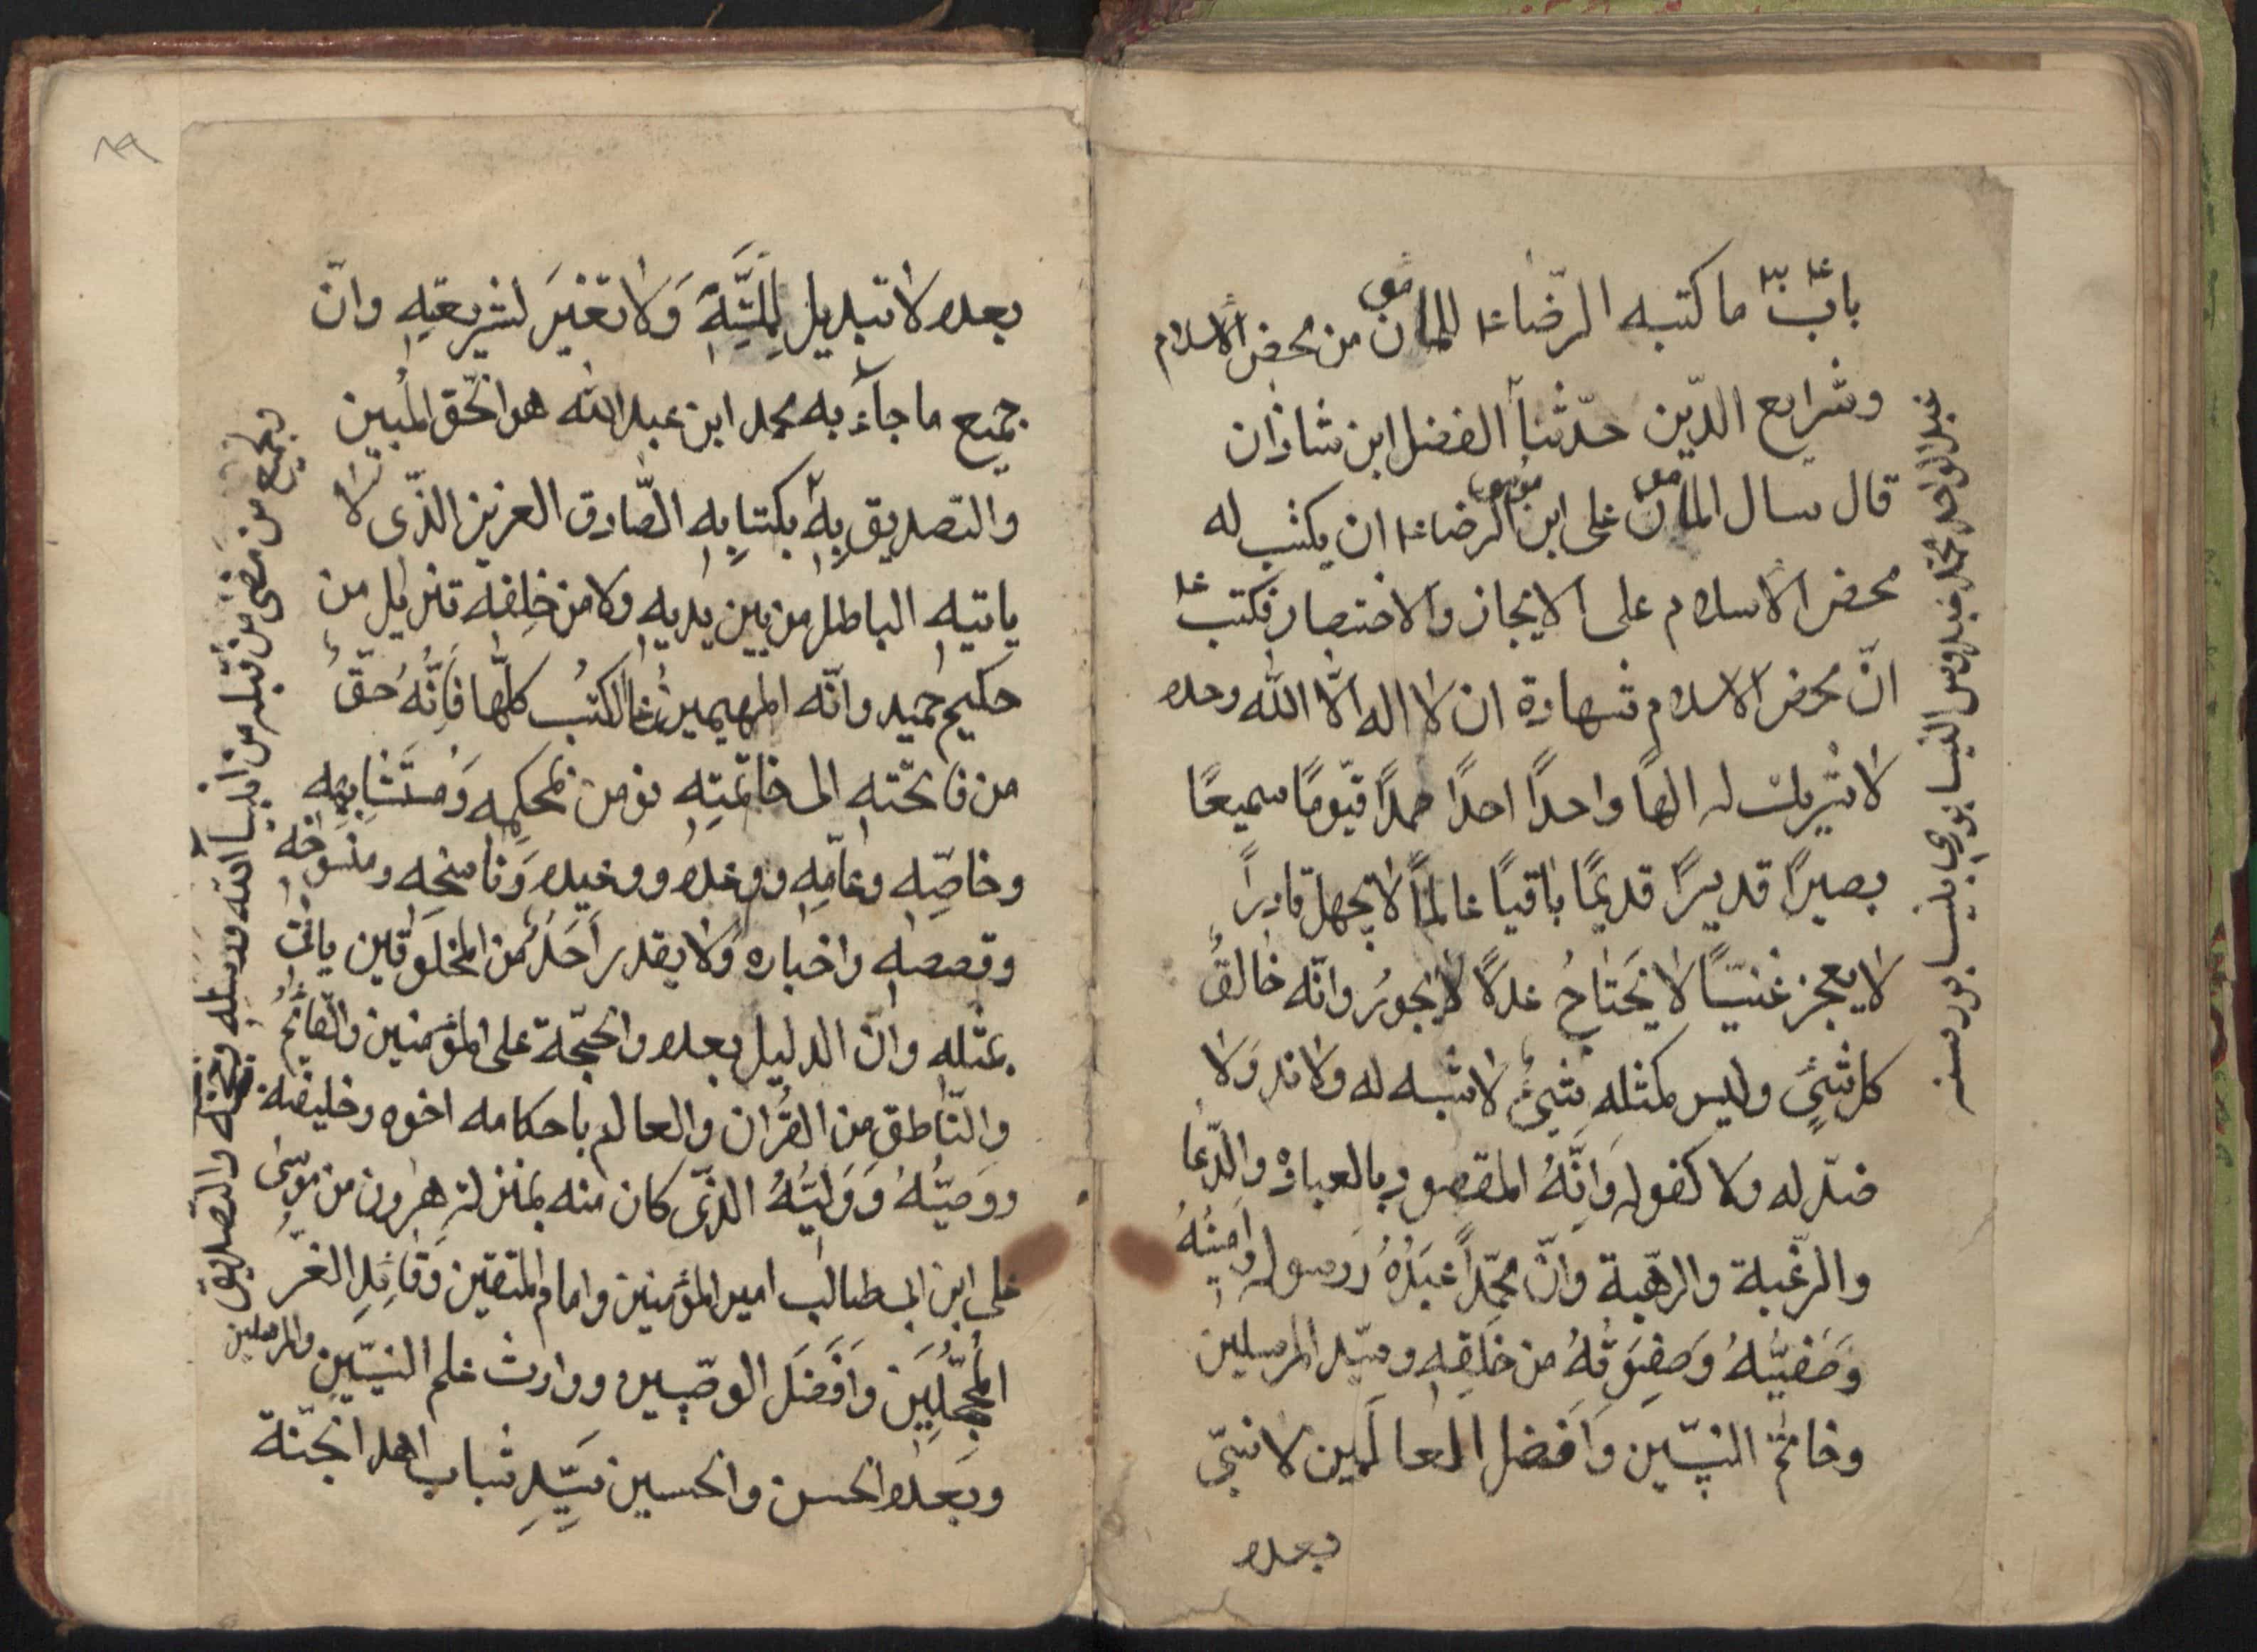 باب ما كتبه الرضا ع للمامون من محض الاسلام
وشرايع الدّين حدّثنا الفضل ابن شاذان
قال سال المامون على ابن موسى الرضا ع ان يكتب له
محض الاسلام على الايجاز والاختصار فكتب ع
انّ محض الاسلام شهادة ان لا اله الّا الله وحده
لا شريك له الهًا واحدًا احدًا صمدًا قيّومًا سميعًا
بصيرًا قديرًا قديمًا باقيًا عالمًا لا يجهل قادرًا
لا يعجز غنيًّا لا يَحتاجُ عدلًا لا يجورُ وانّه خالقُ
كل شئٍ وليس كمثله شئٌ لا شبه له ولا ند وَلا
ضدّ له ولا كفو له وَانَّهُ المقصود بالعبادة والدّعا
والرّغبة والرهّبة وانّ محمّدًا عَبدُهُ ورسوله وامينُهُ
وَصَفيُّهُ وَصفوَتُهُ من خلقِهِ وسيّد المرسلين
وخاتمُ النبيّين وَافضل العالَمين لا نبىّ
بعده
عبد الواحد محمد عبدوس النيسابورى بنيسابور سنه
بعده لا تبديل لِمِلَّتِهِ وَلا تغيَرَ لشريعتِهِ وانّ
جميع ما جآء به محمد ابن عبد الله هو الحّق المُبين
والتصديق بِهِ بكتابِهِ الصّادق العزيز الذّى لا
ياتيه الباطل من بين يديه ولا من خلفه تنزيل من
حكيم حميد وانّه المهيمين على الكتب كلّها فَاِنَّهُ حَقّ
من فاتحته الى خاتمته نؤمن بمحكمِهِ وَمتشابهِهِ
وخاصّه وعامّهِ ووعده ووعيده وَناسخِه ومنسوخه
وقصصه واخباره وَلا يقدر اَحَدٌ من المخلوقين ياتى
بمثله وانّ الدليل بعده والحجّة على المؤمنين والقائم
والنّاطق من القُران والعالم باحكامه اخوه وخليفته
ووصيُّهُ وَوَليُّهُ الذّى كان منه بمنزلة هٰرون من موسىٰ
على ابن ابى طالب امير المؤمنين وامام المتقين وَقائِدِ الغرّ
المُحجّلِينَ وَاَفضَلَ الوصّيين ووارث علم النبيّين والمرسلين
وبَعدَهُ الحسن والحسين سَيِّدِ شباب اهل الجنّة
وبجميع من مضى من قبله من انبيآء الله ورسله وحججه والتصديق